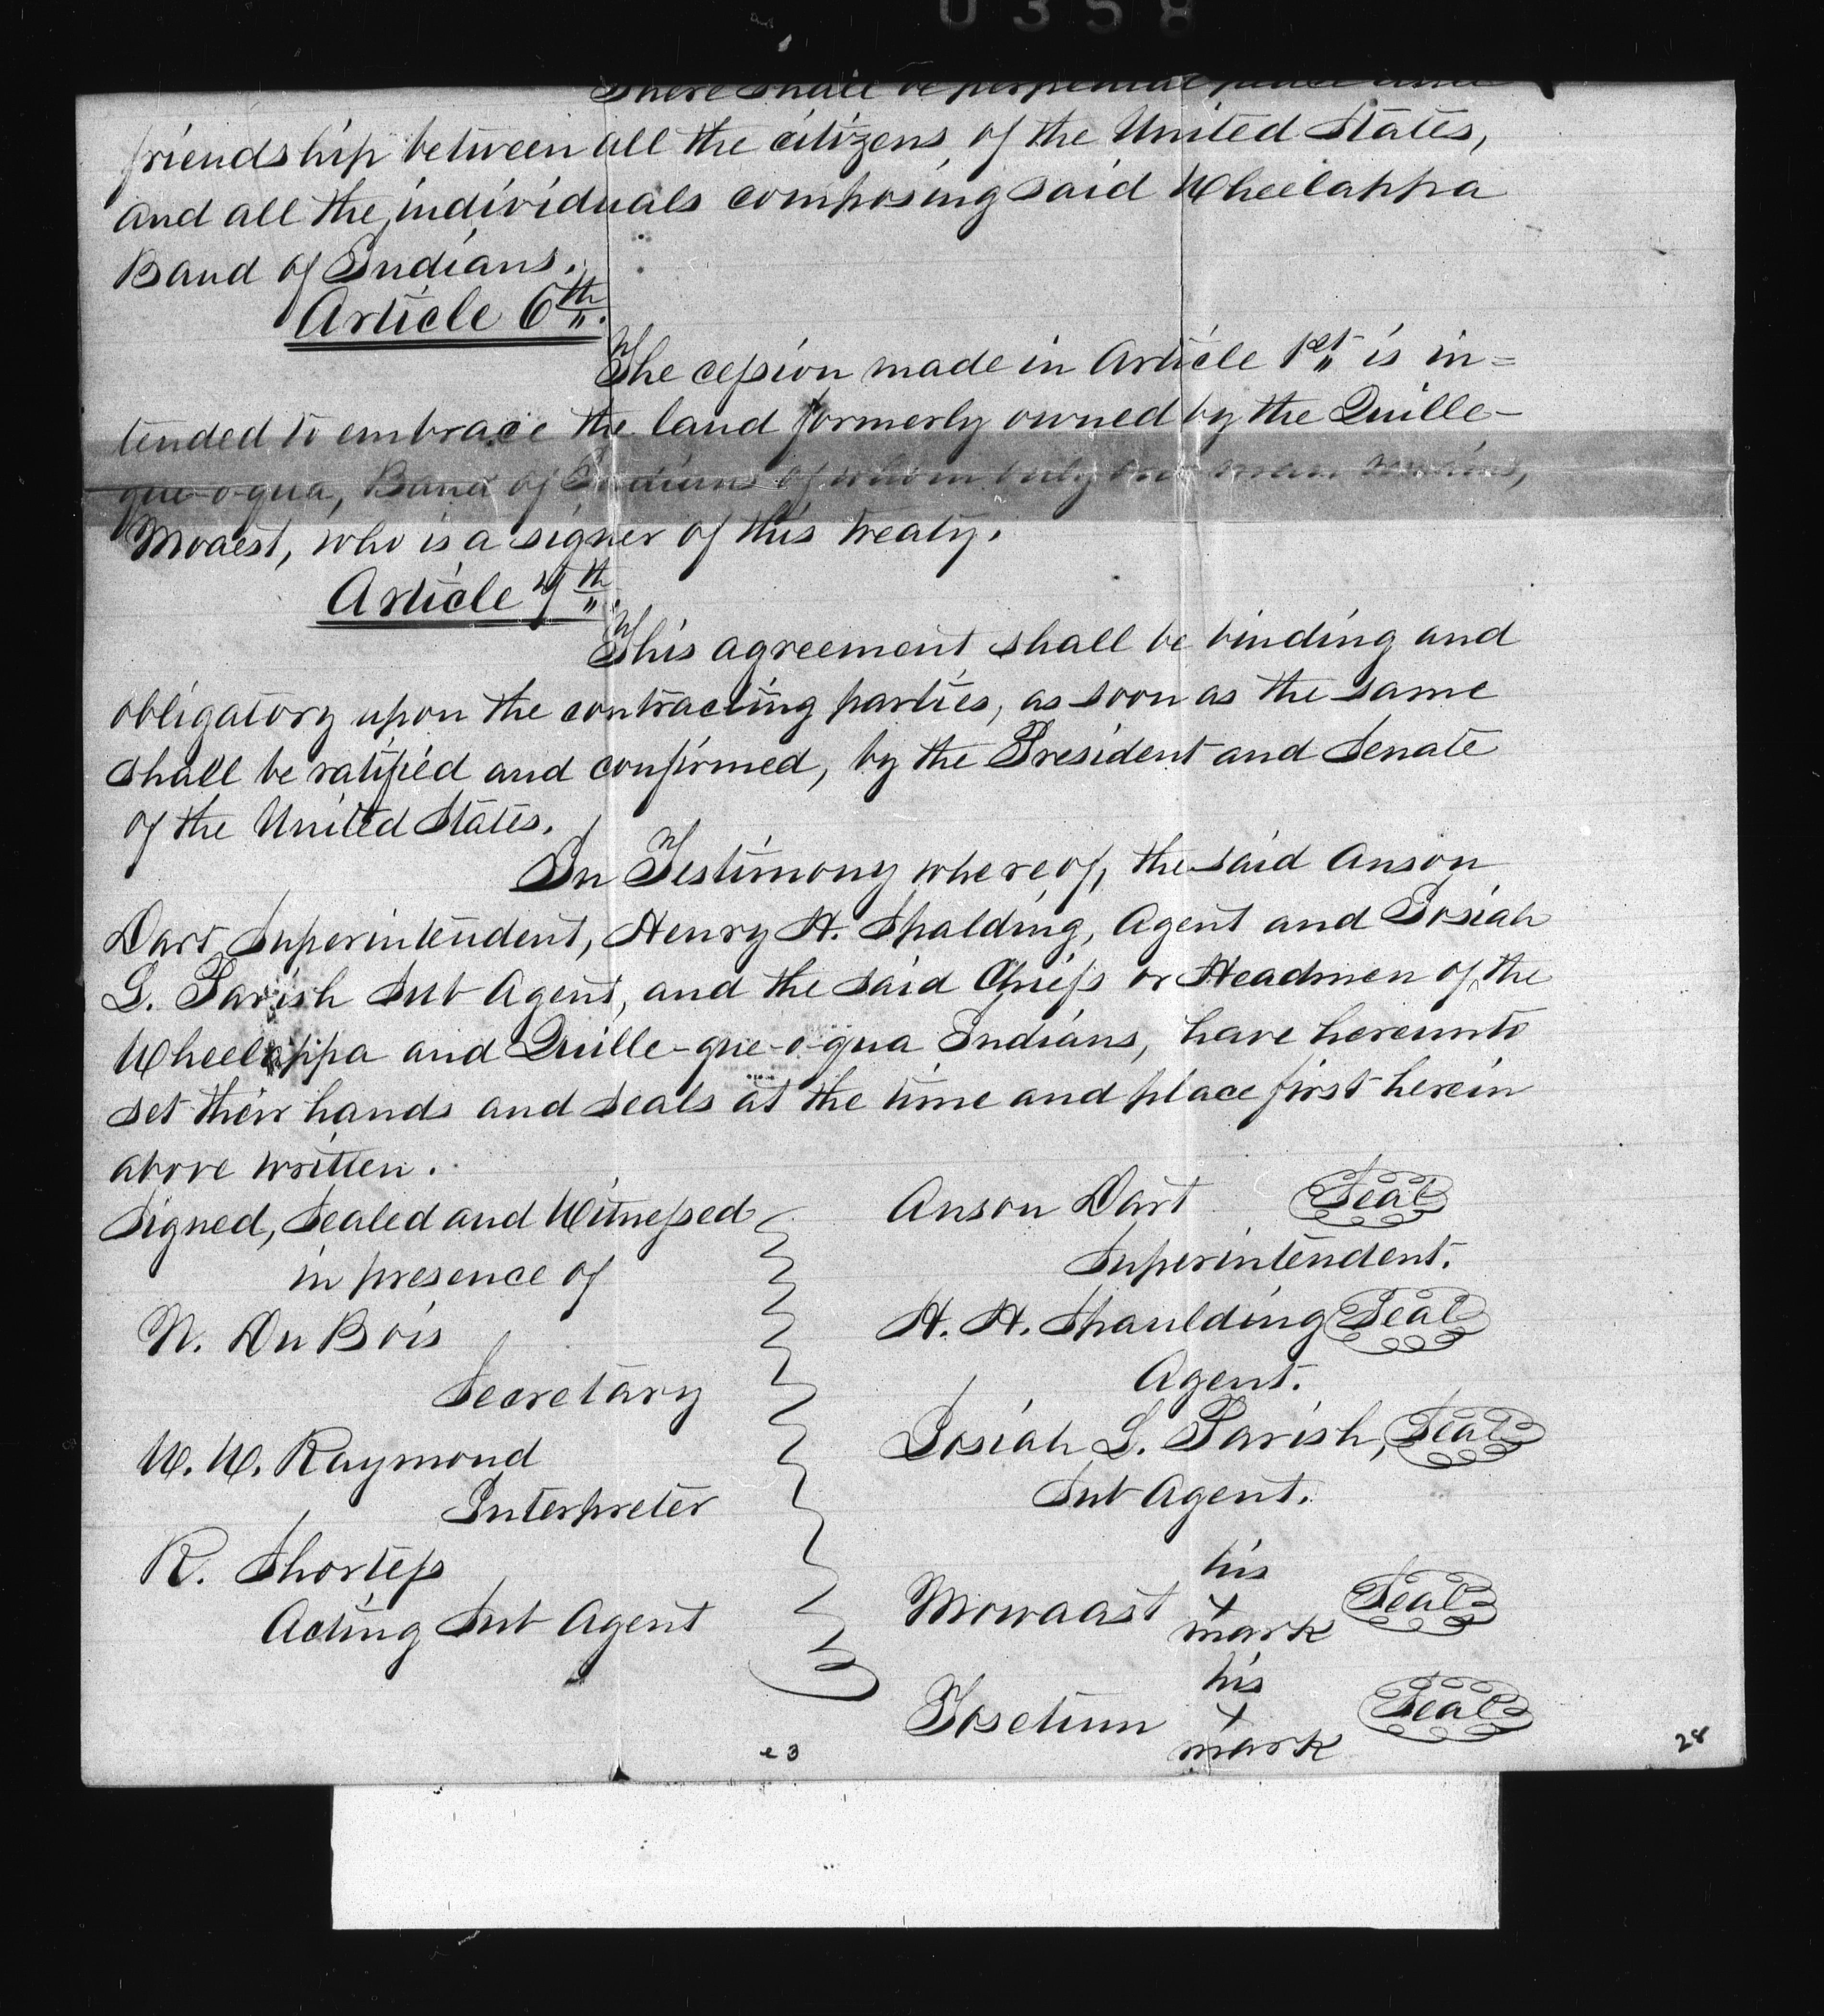 0358
There shall be perpetual peace and
friendship between all the citizens, of the United States,
and all the, individuals composing said Wheelappa
Band of Indians.
Article 6th.
The cession made in Article 1st is in=
tended to embrace the land formerly owned by the Quille-
que-o-qua, Band of Indians of whom only one man remains,
Moaest, who is a signer of this treaty.
Article 7th.
This agreement shall be binding and
obligatory upon the contracting parties, as soon as the same
shall be ratified and confirmed, by the President and Senate
of the United States.
In Testimony whereof, the said Anson
Dart, Superintendent, Henry H. Spalding, Agent and Josiah
L. Parish Sub Agent, and the said Chiefs or Headmen of, the
Wheelappa and Quille-que-o-qua Indians, have hereunto
set their hands and seals at the time and place first herein
above written.
Signed, Sealed and Witnessed
in presence of
N. Du Bois
Secretary
W. W. Raymond
Interpreter
R. Shortess
Acting Sub Agent
Anson Dart Seal
Superintendent.
H. H. Spaulding Seal
Agent.
Josiah L. Parish, Seal
Sub Agent.
his
Mowaast x Seal
mark
his
Tosetum x Seal
mark
e3
28